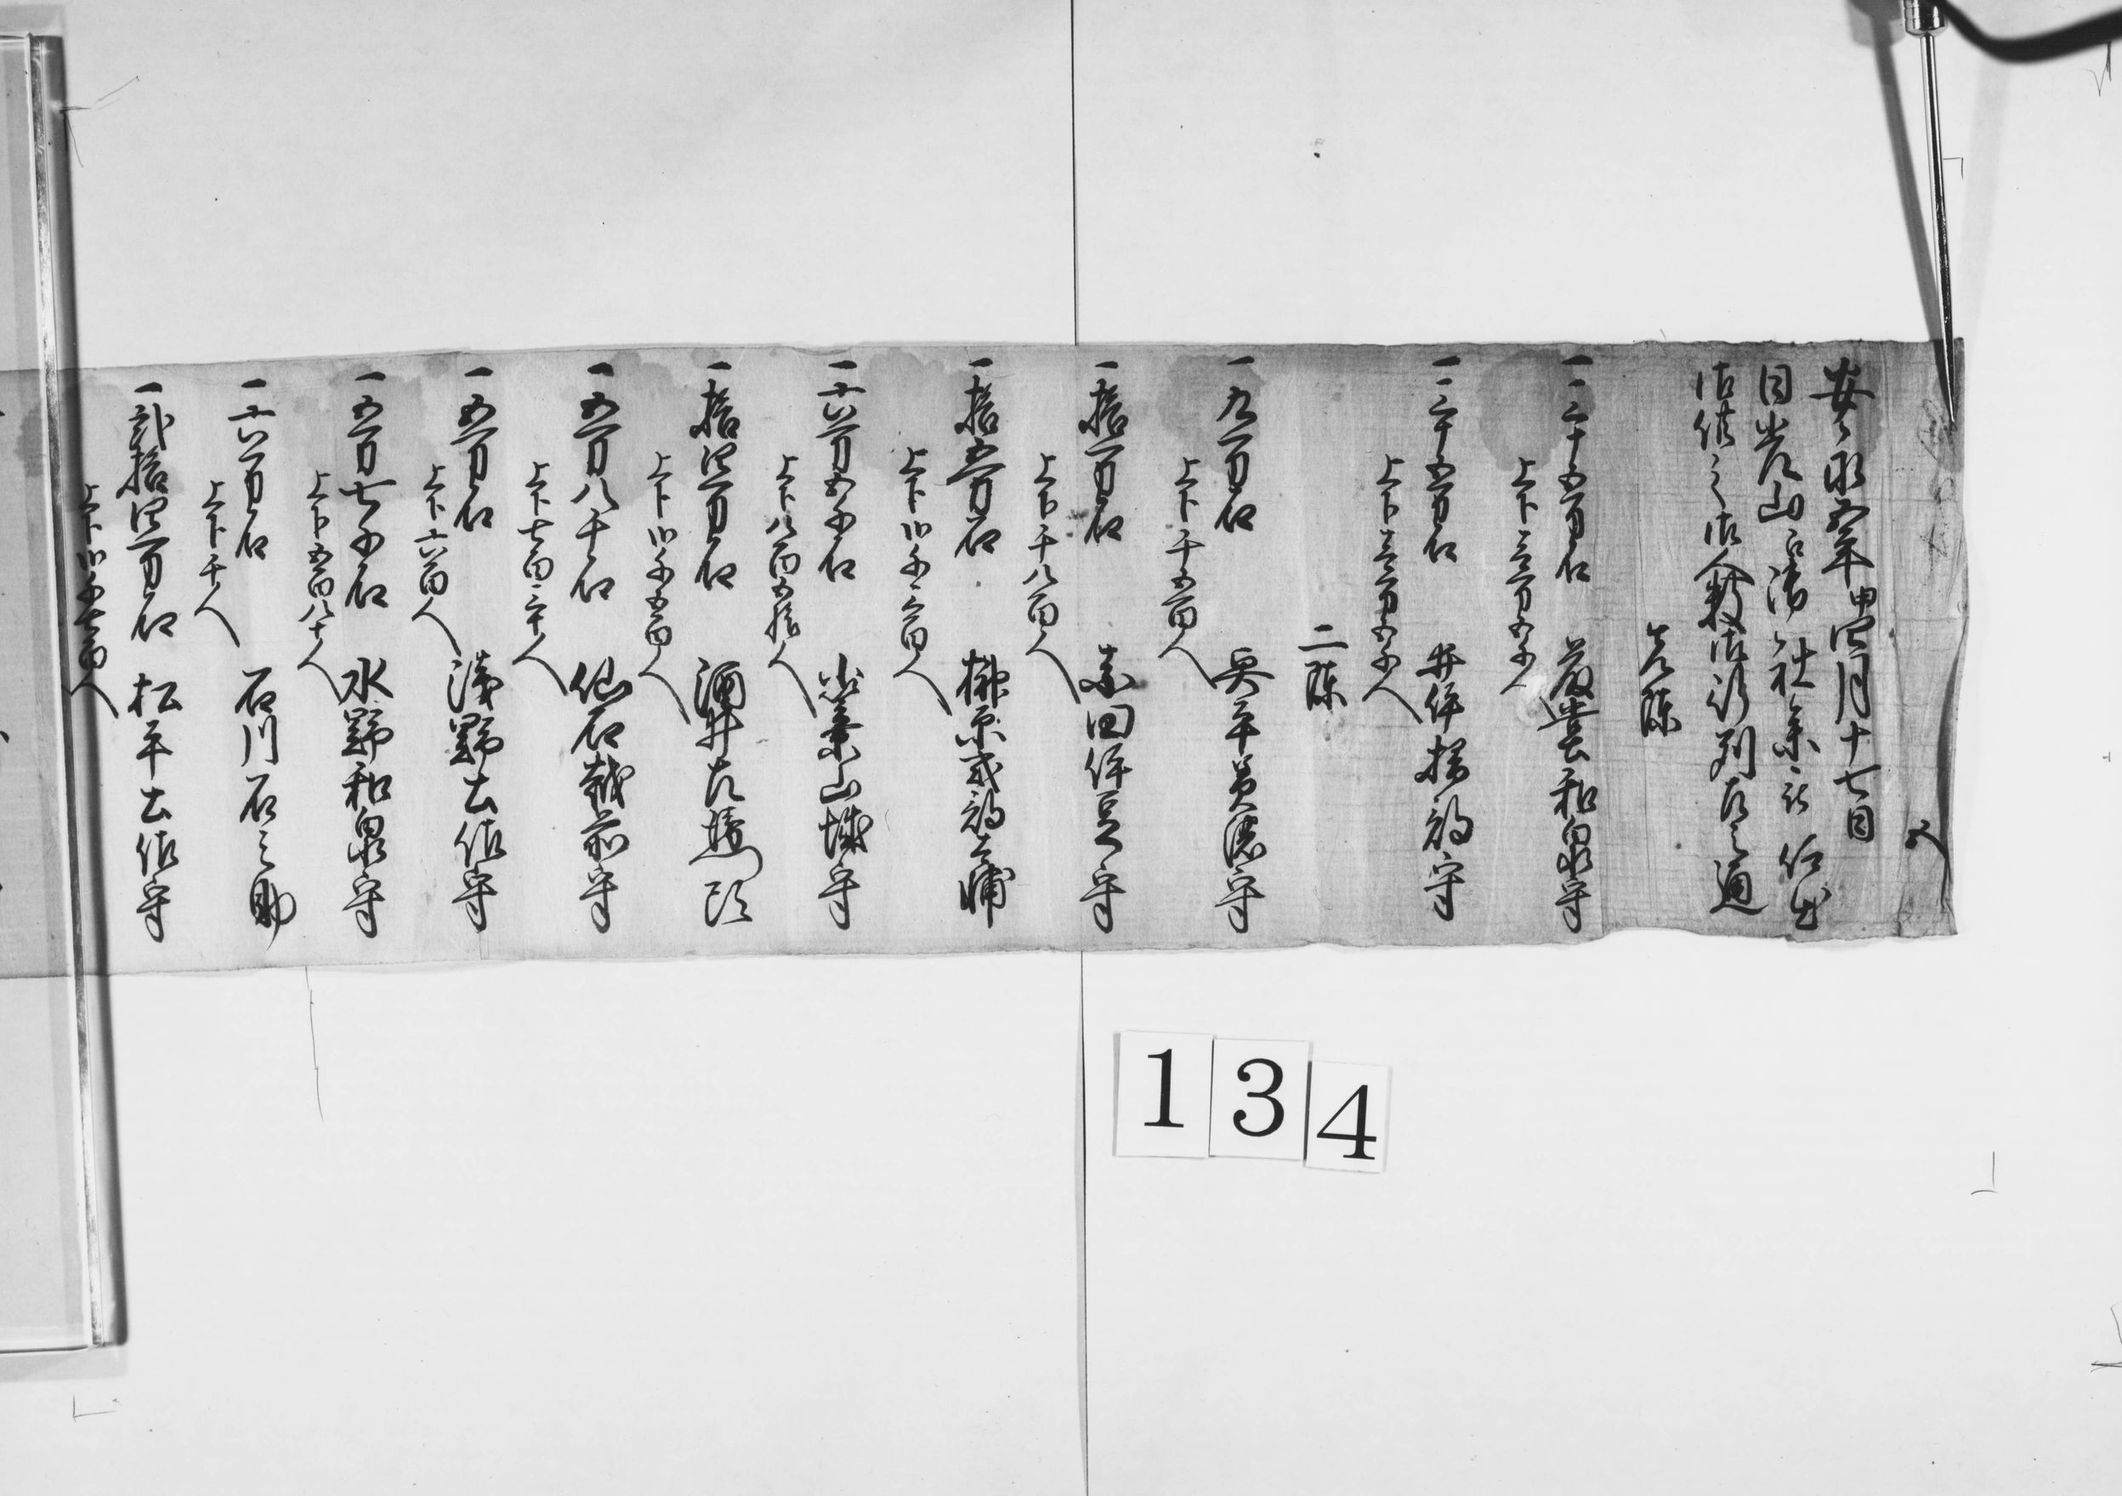 安永五年申四月十七日
日光山江御社参被仰出
御供之御人数御行列左之通
先陳
一三十五万石 藤堂和泉守
上下三万五千人
一三十五万石 井伊掃部守
上下三万五千人
二陳
一九万石 奥平美濃守
上下千五百人
一拾万石 真田伊豆守
上下千八百人
一拾五万石 榊原式部太輔
上下弐千三百人
一六万五千石 小美山城守
上下八百五拾人
一拾四万石 酒井左衛門頭
上下弐千五百人
一五万八千石 仙石越前守
上下七百三十人
一五万石 浅野土佐守
上下六百人
一五万七千石 水野和泉守
上下五百八十人
一六万石 石川石之助
上下千人
一弐拾四万石 松平土佐守
上下弐千七百人
134